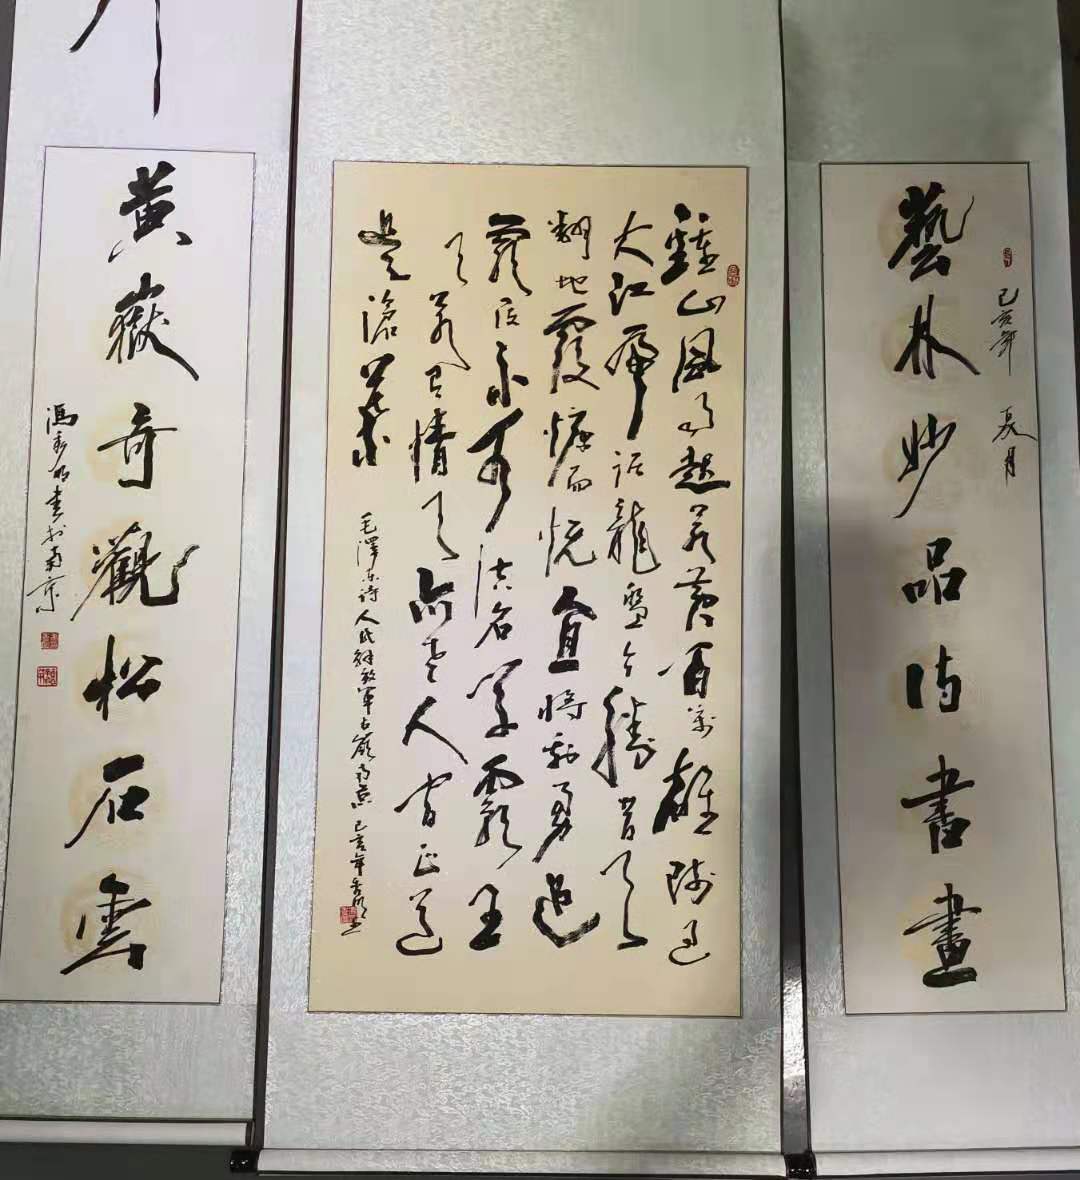 己亥年 夏月
藝林妙品詩書畫
鍾山風雨起蒼黄百萬雄師過
大江虎踞龍盤今勝昔天
翻地覆慷而慨宜將剩勇追
窮寇不可沽名學霸王
天若有情天亦老人間正道
是滄桑
毛澤东诗人民解放軍占領南京 己亥年秀明书
黄嶽奇觀松石雲
馮秀明书於南京